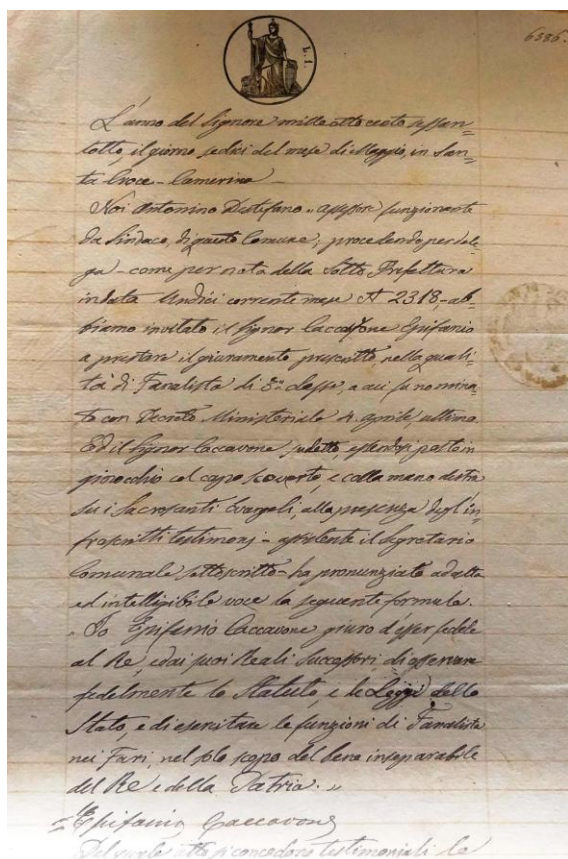 6386.
L. 1.
L'anno del Signore mille otto cento sessan=
totto, il giorno sedici del mese di Maggio, in San=
ta Croce-Camerina
Noi Antonino Distefano - assessore funzionante
da Sindaco, di questo Comune; procedendo per dele=
ga - come per nota della Sotto Prefettura
in data Undici corrente mese N. 2318 - ab=
biamo invitato il Signor Caccavone Epifanio
a prestare il giuramento prescritto nella quali=
tà di Fanalista di 3.a classe, a cui fu nomina=
to con Decreto Ministeriale 4. aprile, ultimo.
Ed il Signor Caccavone sudetto, essendosi posto in
ginocchio col capo scoverto, e colla mano destra
su i Sacrosanti Evangeli, alla presenza degl'in=
frascritti testimonj - assistente il Segretario
Comunale sottoscritto - ha pronunziato ad alta
ed intelligibile voce la seguente formula.
„ Io Epifanio Caccavone giuro d'esser fedele
al Re, ed ai suoi Reali Successori, di osservare
fedelmente lo Statuto, e le Leggi dello
Stato, e di esercitare le funzioni di Fanalista
nei Fari, nel solo scopo del bene inseparabile
del Re e della Patria. „
= Epifanio Caccavone
Del quale atto si concedono testimoniali le